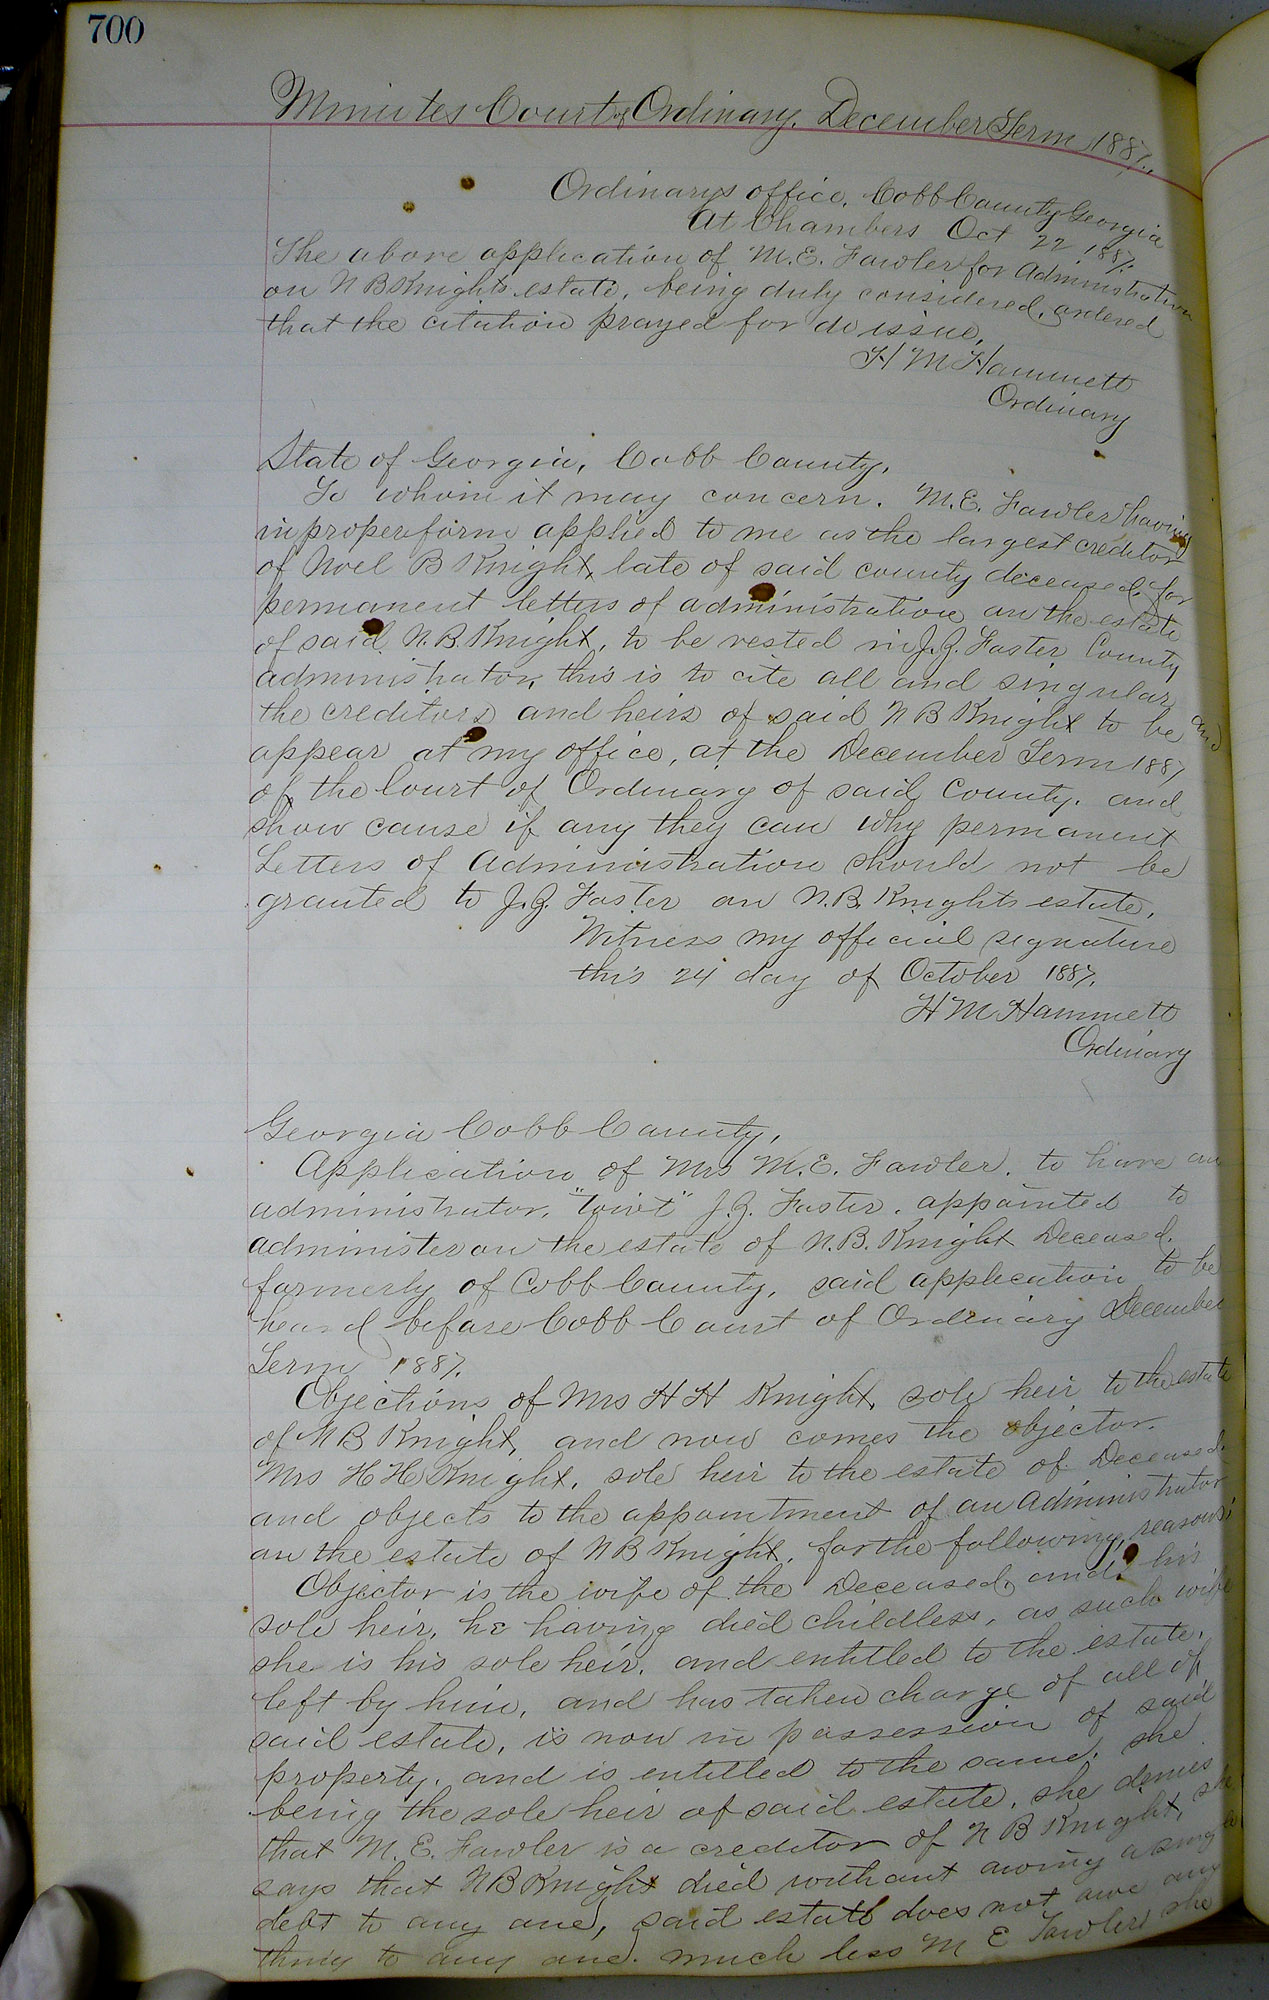 700
Minutes Court of Ordinary, December Term 1887.
Ordinarys office, Cobb County Georgia
At Chambers Oct 22 1887.
The above application of M.E. Fowler for administration
on N B Knights estate, being duly considered, ordered
that the citation prayed for do issue,
H M Hammett
Ordinary
State of Georgia, Cobb County,
To whom it may concern. M.E. Fowler having
in proper form applied to me as the largest creditor
of Noel B Knight, late of said county deceased, for
permanent letters of administration on the estate
of said N.B. Knight, to be vested in J.G. Foster County
administrator, this is to cite all and singular,
the creditors and heirs of said N B Knight to be and
appear at my office, at the December Term 1887
of the Court of Ordinary of said County. and
show cause if any they can why permanent
Letters of administration should not be
granted to J.G. Foster on N.B. Knights estate,
Witness my official signature
this 24 day of October 1887.
H M Hammett
Ordinary
Georgia Cobb County,
Application of Mrs M.E. Fowler, to have an
administrator, "towit" J.G. Foster, appointed to
administer on the estate of N.B. Knight Deceased,
formerly of Cobb County, said application to be
heard before Cobb Court of Ordinary December
Term 1887.
Objections of Mrs H H Knight, sole heir to the estate
of N B Knight, and now comes the objector
Mrs H H Knight, sole heir to the estate of Deceased,
and objects to the appointment of an administrator
on the estate of N B Knight, for the following reasons;
Objector is the wife of the Deceased, and his
sole heir, he having died childless, as such wife
she is his sole heir, and entitled to the estate,
left by him, and has taken charge of all of
said estate, is now in possession of said
property, and is entitled to the same, she
being the sole heir of said estate, she denies
that M.E. Fowler is a creditor of N B Knight, she
says that N B Knight died without owing a single
debt to any one, said estate does not owe any
thing to any one, much less M E Fowler, she